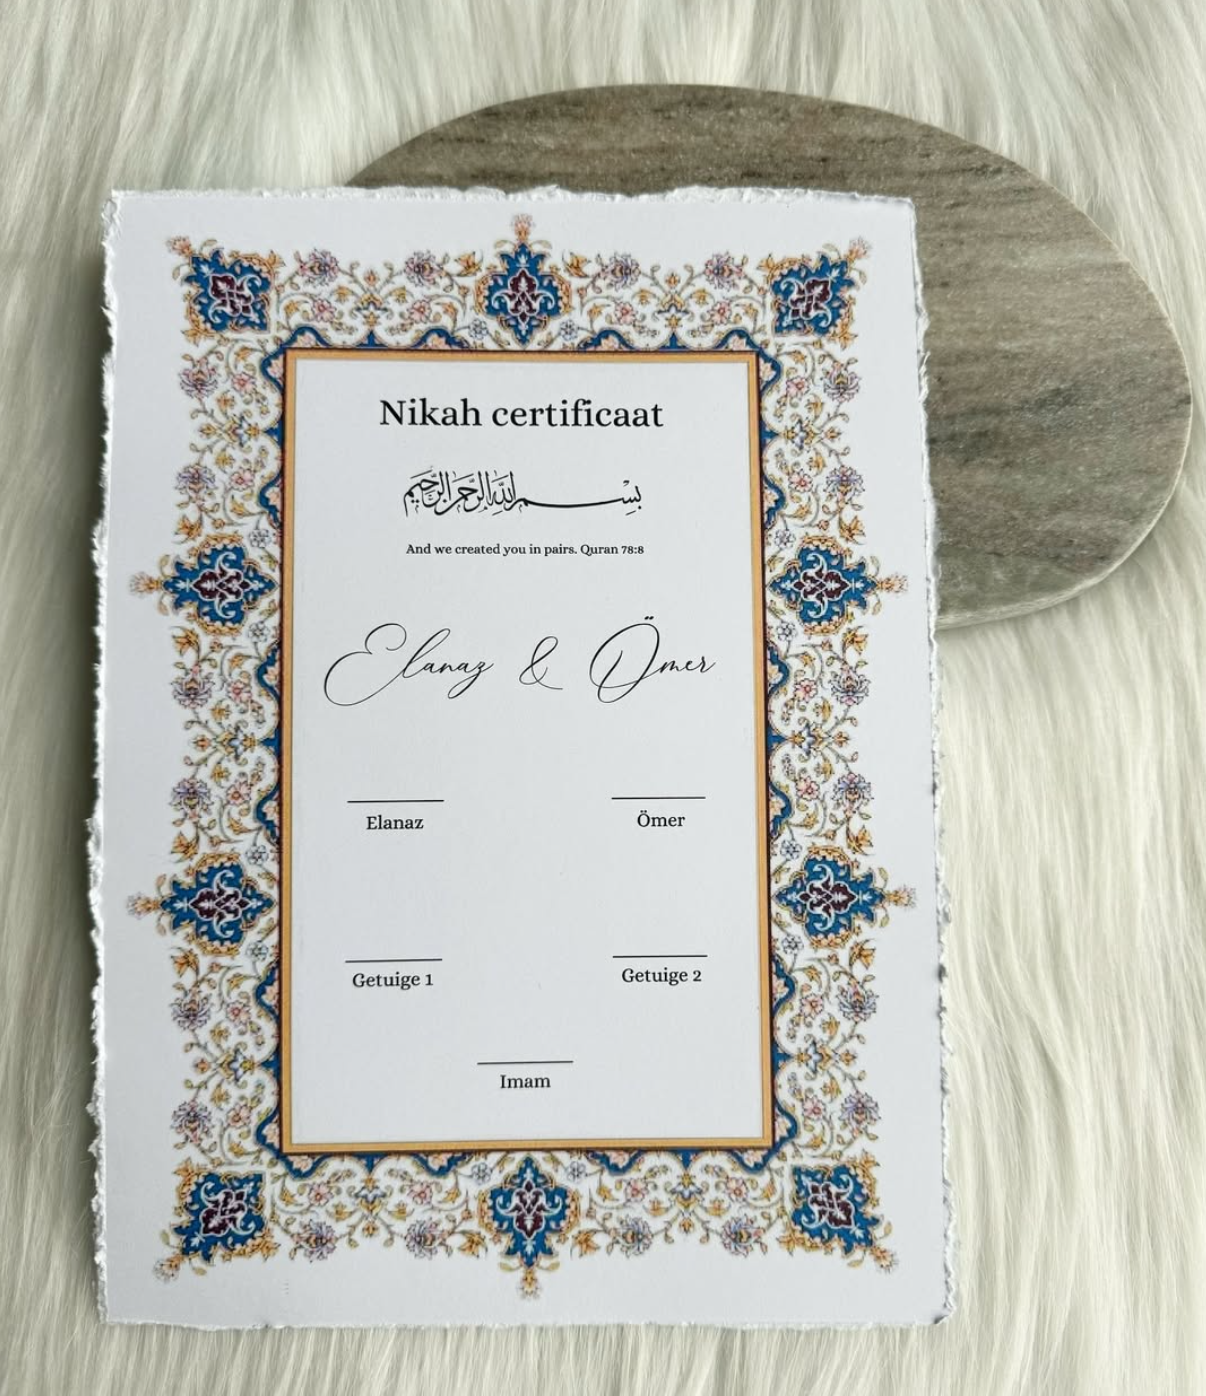 Nikah certificaat
بِسْمِ اللَّهِ الرَّحْمَٰنِ الرَّحِيمِ
And we created you in pairs. Quran 78:8
Elanaz & Ömer
Elanaz Ömer
Getuige 1 Getuige 2
Imam